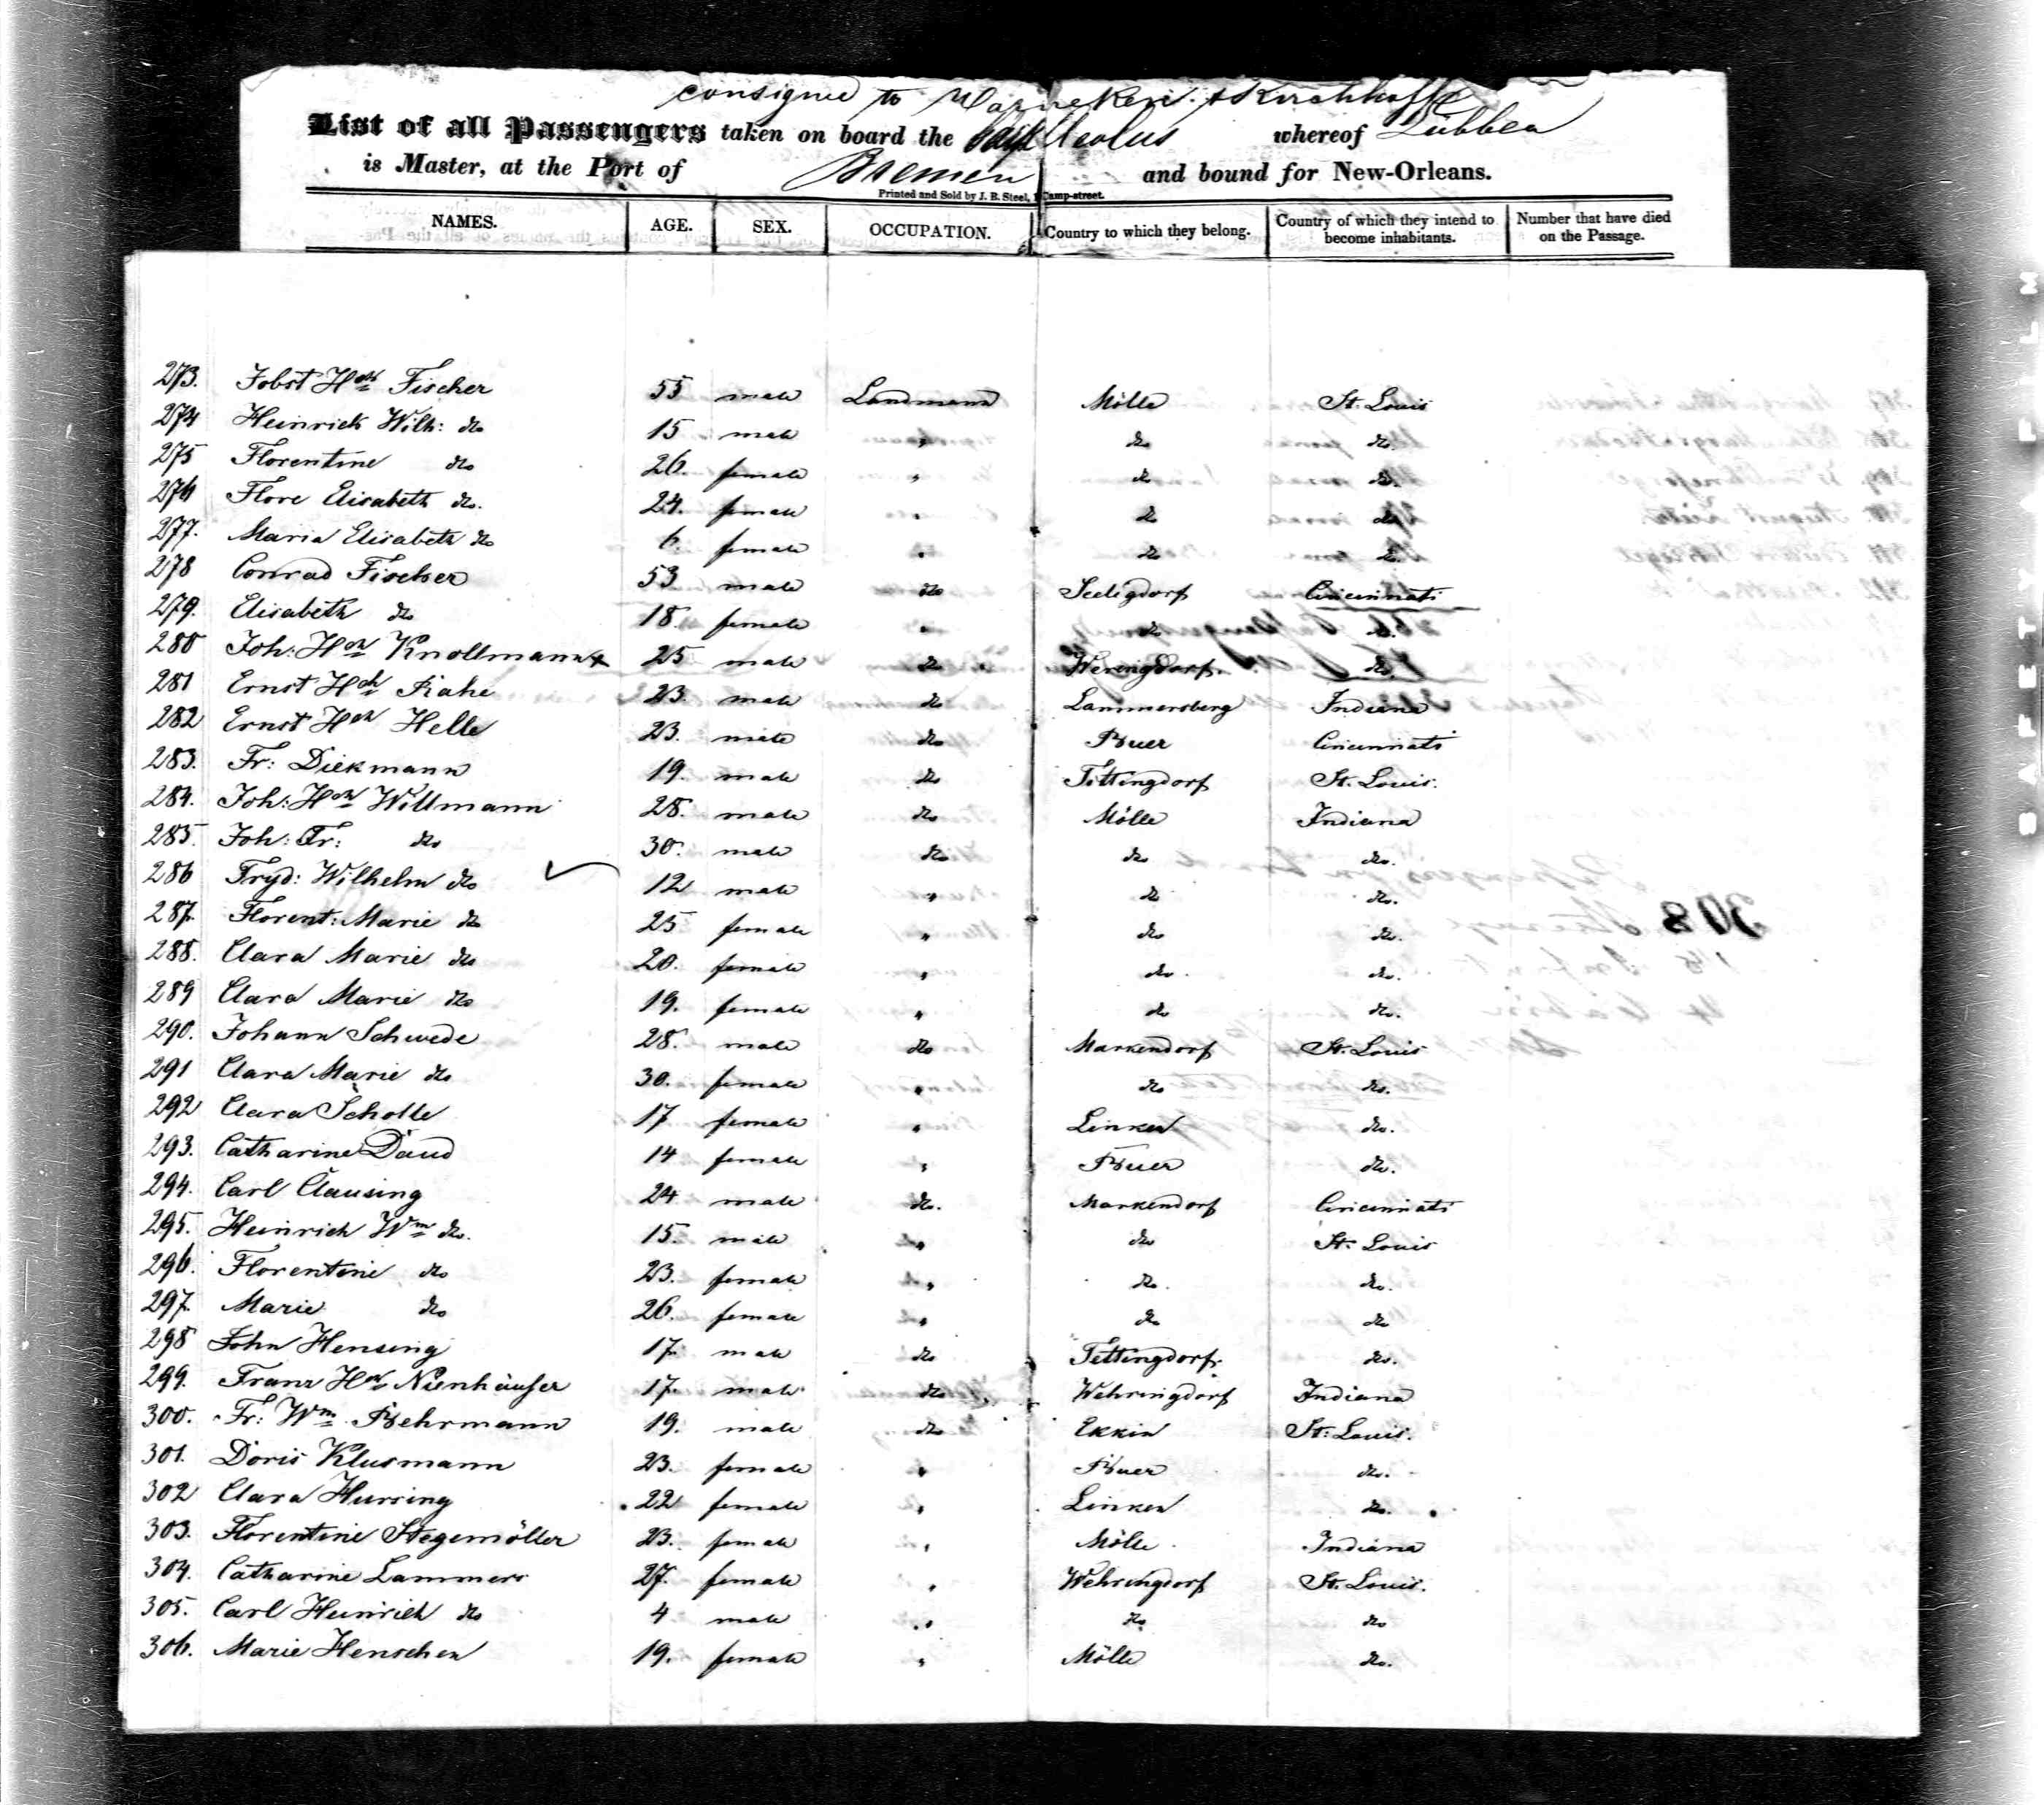 consigned to
List of all Passengers taken on board the Aeolus whereof Lübben
is Master, at the Port of Bremen and bound for New-Orleans.
Printed and Sold by J. B. Steel, Camp-street.
NAMES. AGE. SEX. OCCUPATION. Country to which they belong. Country of which they intend to become inhabitants. Number that have died on the Passage.
273. Jobst Hch Fischer 55 male Landmann Mölle St. Louis
274 Heinrich Wilh: do 15 male " do do.
275 Florentine do 26. female " do do.
276 Flore Elisabeth do. 24. female " do do
277. Maria Elisabeth do 6. female " do do.
278 Conrad Fischer 53 male do Seeligdorf Cincinnati
279. Elisabeth do 18. female " do do.
280 Joh: Hch Knollmann x 25 male do Weringdorf. do.
281 Ernst Hch 23. male do Lammersberg Indiana
282 Ernst Hch Helle 23. male do Buer Cincinnati
283. Fr: Diekmann 19. male do Tittingdorf St. Louis.
284. Joh: Hch Willmann 28. male do Mölle Indiana
285. Joh: Fr: do 30. male do do do.
286 Fryd: Wilhelm do 12 male " do do.
287. Florent: Marie do 25 female " do do.
288. Clara Marie do 20. female " do. do.
289 Clara Marie do 19. female " do do.
290. Johann Schwede 28. male do Markendorf St. Louis
291 Clara Marie do 30. female " do do.
292 Clara Scholle 17 female " Linken do.
293. Catharine 14 female " Buer do.
294. Carl Clausing 24 male do. Markendorf Cincinnati
295. Heinrich Wm do. 15. male " do St. Louis
296. Florentine do 23. female " do. do.
297. Marie do 26. female " do do
298 John Hensing 17. male do Tettingdorf. do.
299. Franz Hch Nienhäuser 17. male do Wehringdorf Indiana
300. Fr: Wm Behrmann 19. male do Ekkin St: Louis.
301. Doris Klusmann 23. female " Buer do.
302 Clara 22 female " Linken do.
303. Florentine Stegemöller 23. female " Mölle Indiana
304. Catharine Lammers 27. female " Wehringdorf St. Louis.
305. Carl Heinrich do 4 male " do do
306. Marie Henschen 19. female " Mölle do.
SAFETY FILM